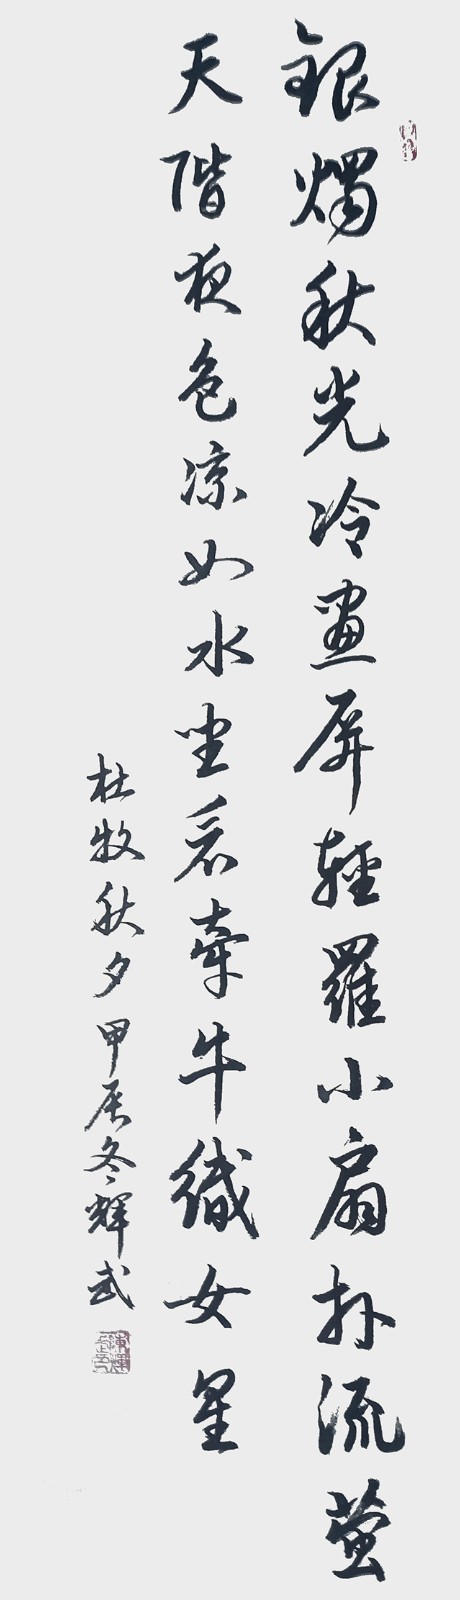 銀燭秋光冷畫屏輕羅小扇扑流螢
天階夜色凉如水坐看牽牛織女星
杜牧秋夕甲辰冬輝武